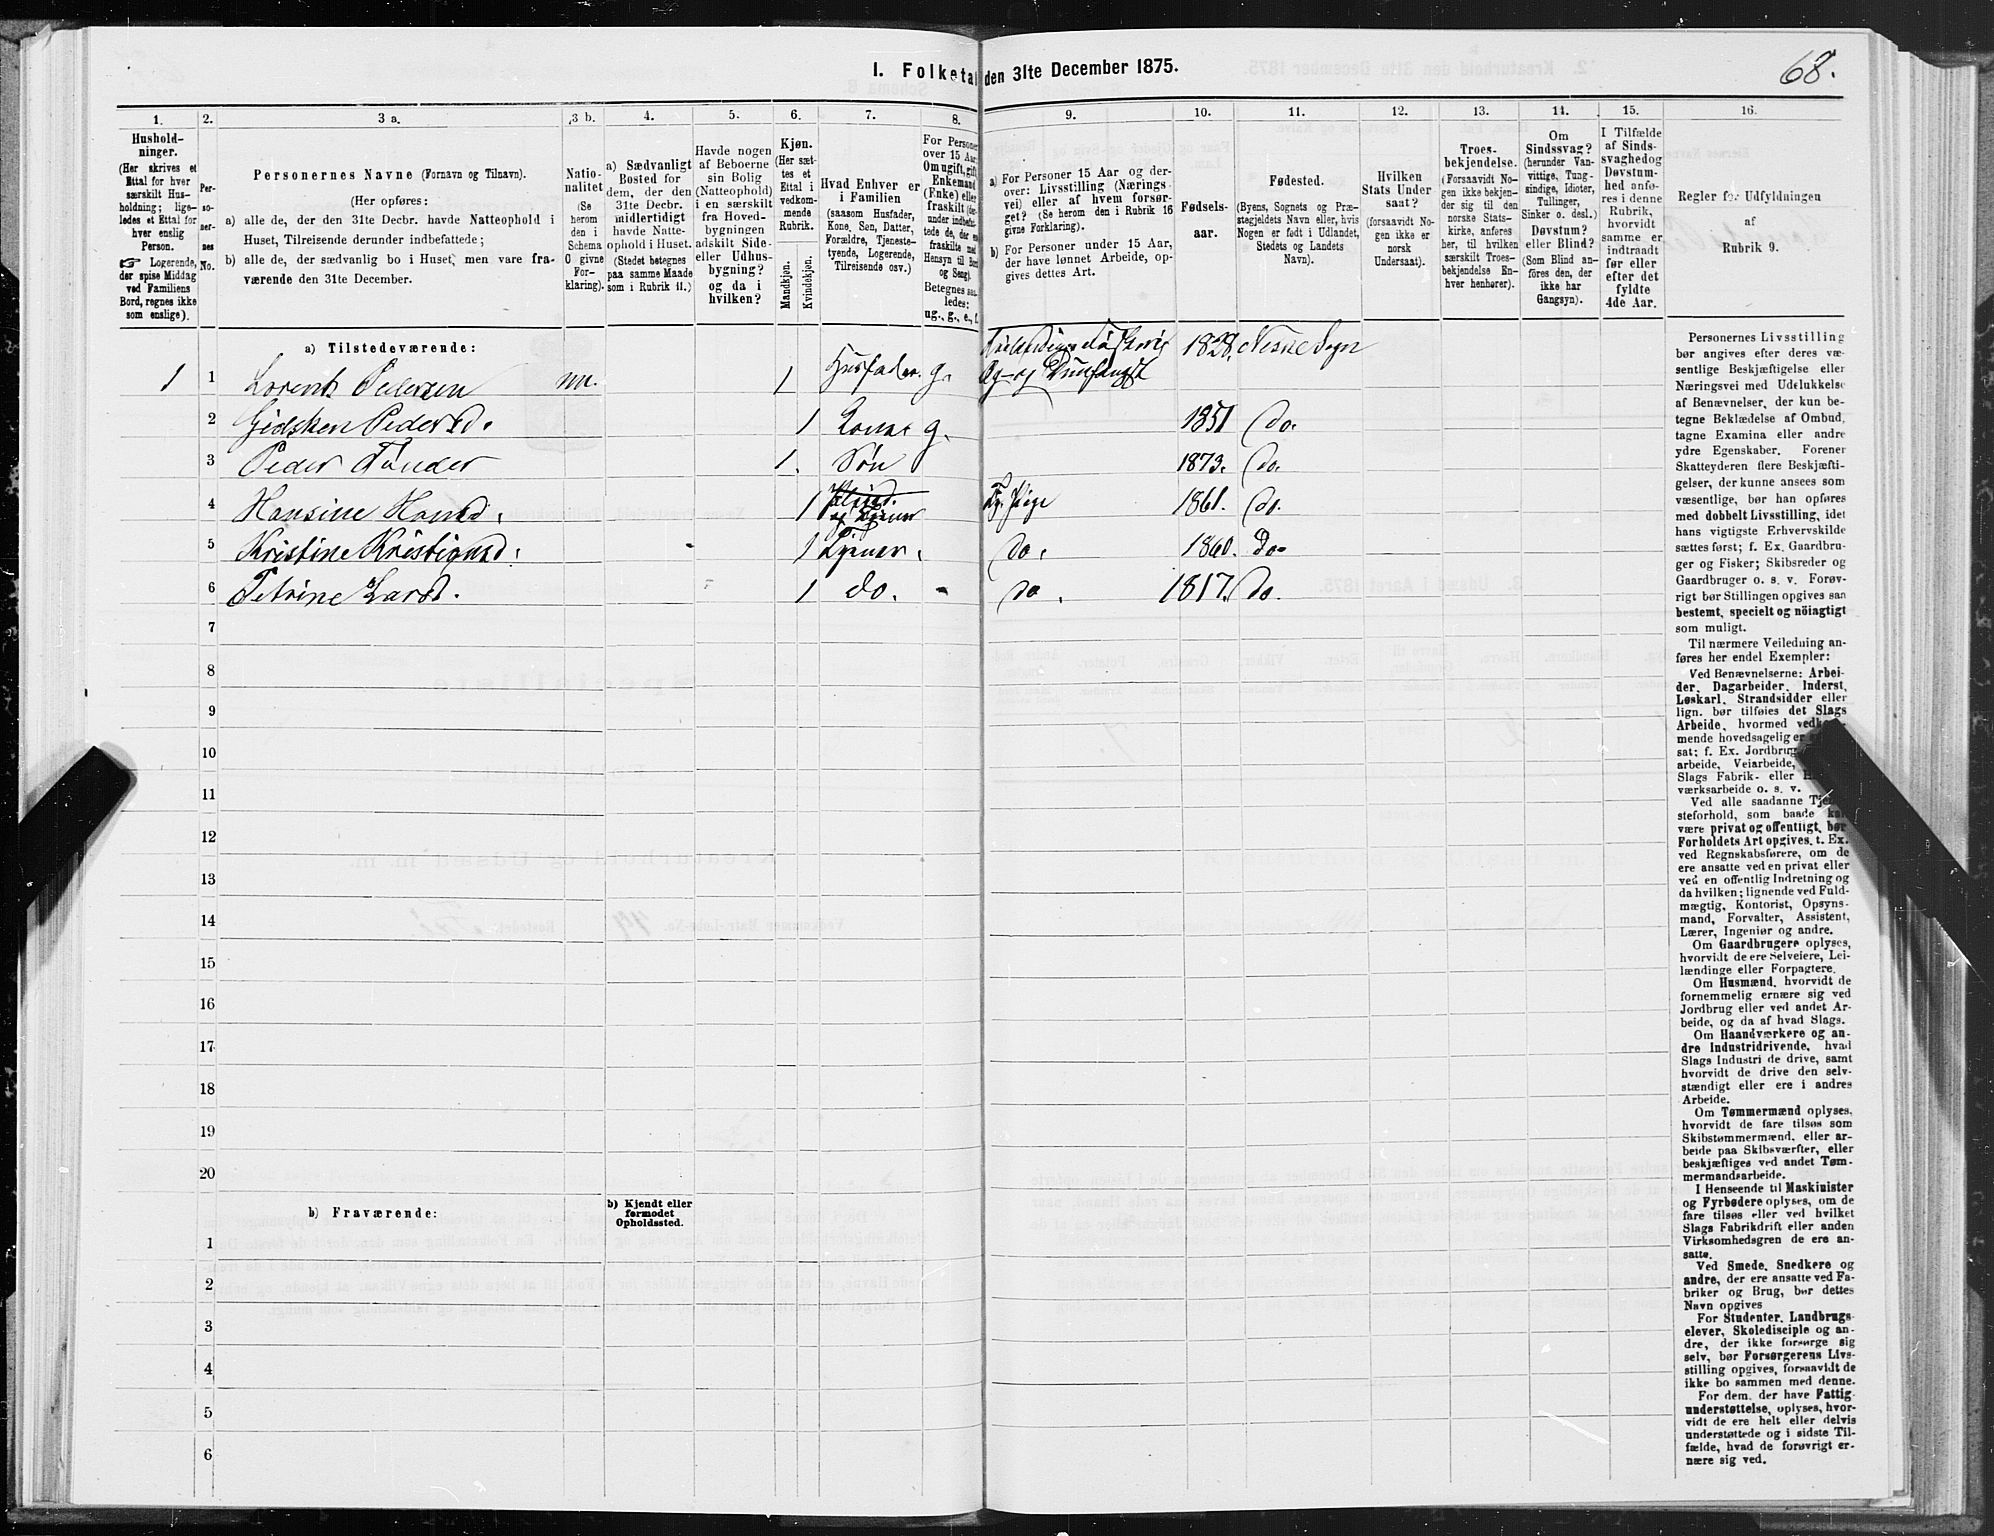 68.
I. Folketal den 31te December 1875.
1.
Hushold-
ninger.
(Her skrives et
Ettal for hver
særskilt Hus-
holdning; lige-
ledes et Ettal for
hver enslig
Person.
☞ Logerende,
der spise Middag
ved Familiens
Bord, regnes ikke
som enslige).
2.
Per-
so-
ner-
nes
No.
3 a.
Personernes Navne (Fornavn og Tilnavn).
(Her opføres:
a) alle de, der den 31te Decbr. havde Natteophold i
Huset, Tilreisende derunder indbefattede;
b) alle de, der sædvanlig bo i Huset, men vare fra-
værende den 31te December.
3 b.
Natio-
nalitet
(Se
herom
den i
Schema
O givne
For-
klaring).
4.
a) Sædvanligt
Bosted for
dem, der den
31te Decbr.
midlertidigt
havde Natte-
ophold i Huset.
(Stedet betegnes
paa samme Maade
som i Rubrik 11.)
5.
Havde nogen
af Beboerne
sin Bolig
(Natteophold)
i en særskilt
fra Hoved-
bygningen
adskilt Side-
eller Udhus-
bygning?
og da i
hvilken?
6.
Kjøn.
(Her sæt-
tes et
Ettal i
vedkom-
mende
Rubrik.
Mandkjøn.
Kvindekjøn.
7.
Hvad Enhver er
i Familien
(saasom Husfader,
Kone, Søn, Datter,
Forældre, Tjeneste-
tyende, Logerende,
Tilreisende osv.)
8.
For Personer
over 15 Aar:
Om ugift, gift,
Enkemand
(Enke) eller
fraskilt
Betegnes saa-
ledes:
ug., g., e., f.
9.
a) For Personer 15 Aar og der-
over: Livsstilling (Nærings-
vei) eller af hvem forsør-
get? (Se herom den i Rubrik 16
givne Forklaring).
b) For Personer under 15 Aar,
der have lønnet Arbeide, op-
gives dettes Art.
10.
Fødsels-
aar.
11.
Fødested.
(Byens, Sognets og Præ-
stegjeldets Navn eller, hvis
Nogen er født i Udlandet,
Stedets og Landets
Navn).
12.
Hvilken
Stats Under
saat?
(forsaavidt No-
gen ikke er
norsk
Undersaat).
13.
Troes-
bekjendelse.
(Forsaavidt No-
gen ikke bekjen-
der sig til den
norske Stats-
kirke, anføres
her, til hvilken
særskilt Troes-
bekjendelse En-
hver henhører).
14.
Om
Sindssvag?
(herunder Van-
vittige, Tung-
sindige, Idioter,
Tullinger,
Sinker o. desl.)
Døvstum?
eller Blind?
(Som Blind an-
føres den, der
ikke har
Gangsyn).
15.
I Tilfælde
af Sinds-
svaghedog
Døvstum-
hed anfø-
res i denne
Rubrik,
hvorvidt
samme er
indtraadt
før eller
efter det
fyldte
4de Aar.
16.
Regler for Udfyldningen
af
Rubrik 9.
a) Tilstedeværende:
1 1 Lorents Pedersen nn. 1 Husfader. g. 1828. Sogn
2 Gidsken Pedersd. 1 Kone g. 1851 do.
3 Peder Tünder 1. Søn 1873. do.
4 Hansine Hansd. 1 Tj. Pige 1861. do.
5 Kristine Kristiansd. 1 Tjener. do. 1860. Do
6 Petrine Larsd. 1 do. do. 1817. do.
7
8
9
10
11
12
13
14
15
16
17
18
19
20
b) Fraværende:
b) Kjendt eller
formodet
Opholdssted.
1
2
3
4
5
6
Personernes Livsstilling
bør angives efter deres væ-
sentlige Beskjæftigelse eller
Næringsvei med Udelukkelse
af Benævnelser, der kun be-
tegne Beklædelse af Ombud,
tagne Examina eller andre
ydre Egenskaber. Forener
Skatteyderen flere Beskjæfti-
gelser, der kunne ansees som
væsentlige, bør han opføres
med dobbelt Livsstilling, idet
hans vigtigste Erhvervskilde
sættes først; f. Ex. Gaardbru-
ger og Fisker; Skibsreder og
Gaardbruger o. s. v. Forøv-
rigt bør Stillingen opgives saa
bestemt, specielt og nöiagtigt
som muligt.
Til nærmere Veiledning an-
føres her endel Exempler:
Ved Benævnelserne: Arbei-
der, Dagarbeider, Inderst,
Løskarl, Strandsidder eller
lign. bør tilføies det Slags
Arbeide, hvormed vedkom-
mende hovedsagelig er
sat; f. Ex. Jordbrug
arbeide, Veiarbeide,
Slags Fabrik- eller
værksarbeide o. s. v.
Ved alle saadanne Tje-
steforhold, som baade kan
være privat og offentligt, bør
Forholdets Art opgives, t. Ex.
ved Regnskabsførere, om de
ere ansatte ved en privat eller
ved en offentlig Indretning og
da hvilken; lignende ved Fuld-
mægtig, Kontorist, Opsyns-
mand, Forvalter, Assistent,
Lærer, Ingeniør og andre.
Om Gaardbrugere oplyses,
hvorvidt de ere Selveiere, Lei-
lændinge eller Forpagtere.
Om Husmænd, hvorvidt de
fornemmelig ernære sig ved
Jordbrug eller ved andet Ar-
beide, og da af hvad Slags.
Om Haandværkere og an-
dre Industridrivende, hvad
Slags Industri de drive, samt
hvorvidt de drive den selv-
stændigt eller ere i andres
Arbeide.
Om Tømmermænd oplyses,
hvorvidt de fare tilsøs som
Skibstømmermænd, eller ar-
beide paa Skibsværfter, eller
beskjæftiges ved andet Tøm-
mermandsarbeide.
I Henseende til Maskinister
og Fyrbødere oplyses, om de
fare tilsøs eller ved hvilket
Slags Fabrikdrift eller anden
Virksomhedsgren de ere an-
satte.
Ved Smede, Snedkere og
andre, der ere ansatte ved Fa-
briker og Brug, bør dettes
Navn opgives
For Studenter, Landbrugs-
elever, Skoledisciple og an-
dre, der ikke forsørge sig
selv, bør Forsørgerens Livs-
stilling opgives, forsaavidt de
ikke bo sammen med denne.
For dem, der have Fattig-
understøttelse, oplyses, hvor-
vidt de ere helt eller delvis
understøttede og i sidste Til-
fælde, hvad de forøvrigt er-
nære sig ved.